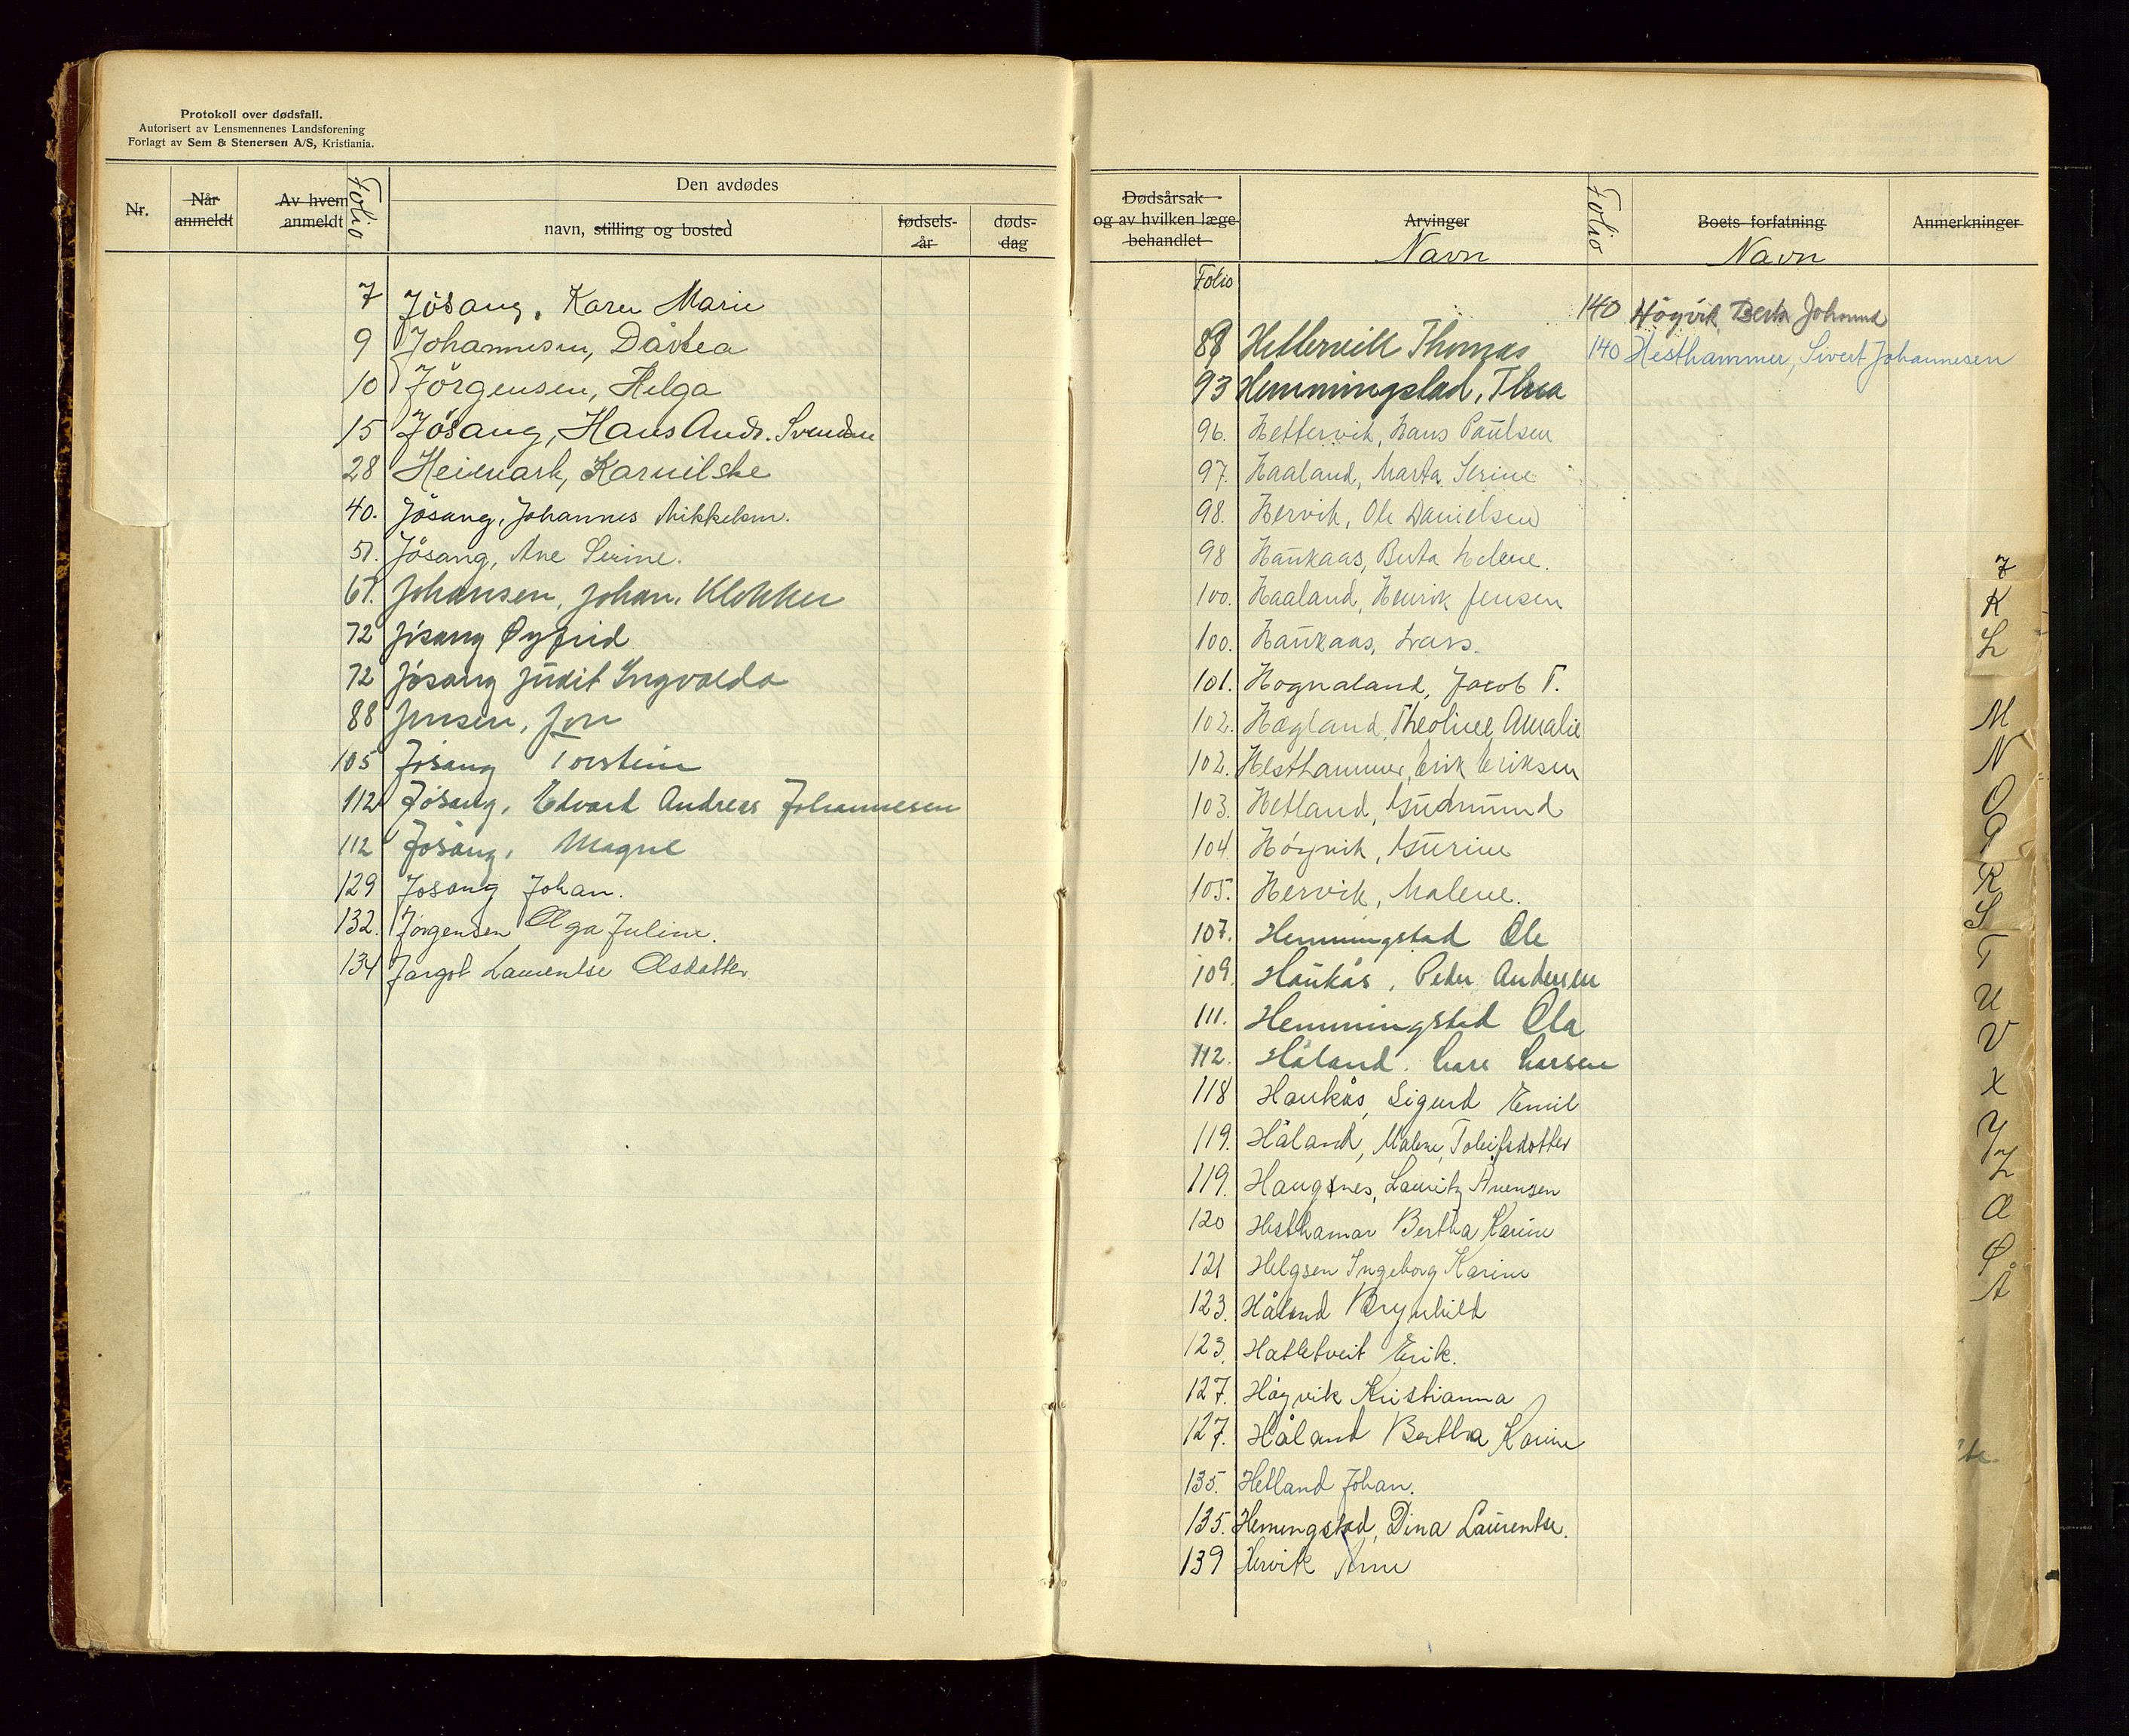 Protokoll over dødsfall.
Autorisert av Lensmennenes Landsforening
Forlagt av Sem & Stenersen A/S, Kristiania.
Nr.
Når anmeldt
Av hvem anmeldt
Folio
Den avdødes
navn, stilling og bosted
fødsels-år
døds-dag
7 Jösang, Karen Marie
9 Johannesen, Dårtea
10 Jörgensen, Helga
15 Jösang, Hans Andr. Svendsen
28 Heimark, Karnilske
40. Jösang, Johannes Mikkelsen.
51. Jösang, Ane Serine.
67. Johansen, Johan, Klokker
72 Jösang Øyfrid
72 Jösang Judit Ingvalda
88 Jensen, Jon
105 Jösang Torstein
112 Jösang, Edvard Andreas Johannesen
112 Jösang, Magne
129 Jøsang Johan.
132. Jørgensen Olga Juline.
134 Jargot Laurentse Olsdatter
Dødsårsak og av hvilken læge behandlet
Arvinger
Navn
Folio
Boets forfatning
Navn
Anmerkninger
Folio
140 Högvik Berta Johanna
140 Hesthammer, Sivert Johannesen
88 Hettervik Thomas
93 Hemmingstad, Thea
96. Hettervik, Hans Paulsen
97. Haaland, Marta Serine
98. Hervik, Ole Danielsen
98 Haukaas, Berta Helene.
100. Haaland, Henrik Jensen
100. Haukaas, Lars.
101. Hognaland, Jacob T.
102. Hægland, Theoline Amalie
102. Hesthammer, Erik Eriksen
103. Hetland, Gudmund
104 Høyvik, Gurine
105. Hervik, Malene.
107. Hemmingstad Ole
109. Haukås, Peder Andersen
111. Hemmingstad Ola
112. Håland. Lars Larsen
118 Haukås, Sigurd Emil
119. Håland, Malene, Toleifsdotter
119. Haugsnes, Lauritz Avensen
120 Hesthamar Bertha Karine
121 Helgsen Ingeborg Karine
123. Håland Brynhild
123. Hatletveit Erik.
127. Høgvik Kristianna
127. Håland Bertha Karine
135. Hetland Johan.
135. Hemingstad, Dina Laurentse.
139 Hervik Arne
J
K
L
M
N
O
P
R
S
T
U
V
X
Y
Z
Æ
Ø
Å